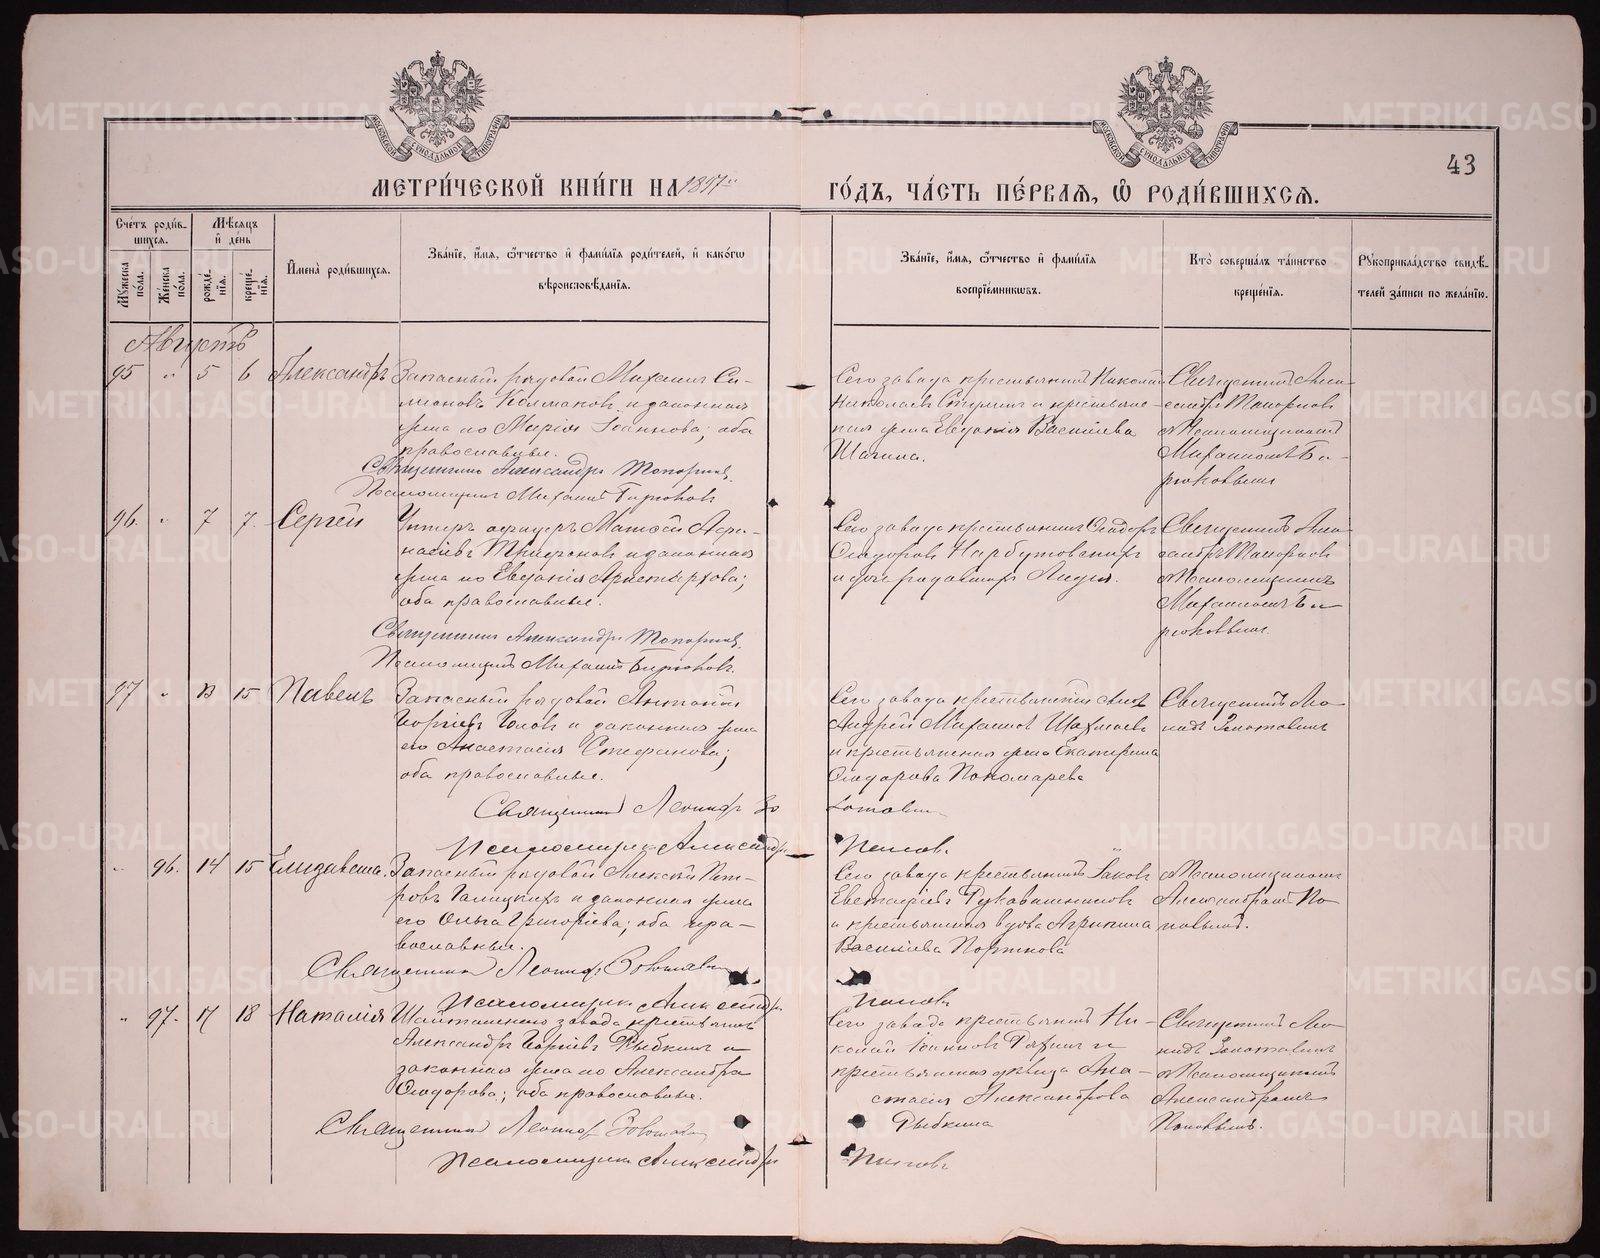 МЕТРИ́ЧЕСКОЙ КНИ́ГИ НА 1897й
ГО́ДЪ, ЧА́СТЬ ПЕ́РВАЯ, Ѡ҆ РОДИ́ВШИХСЯ.
43
Сче́тъ роди́в-
шихся.
Мѣ́сяцъ
и҆ де́нь
Му́жеска
по́ла.
Же́нска
по́ла.
рожде́-
нїя.
креще́-
нїя.
И҆мена̀ роди́вшихся.
Зва́нїе, и҆́мя, ѻ҆́тчество и҆ фами́лїя роди́телей, и҆ како́гѡ
вѣроисповѣ́данїя.
Зва́нїе, и҆́мя, ѻ҆́тчество и҆ фами́лїя
воспрїе́мникѡвъ.
Кто̀ соверша́лъ та́инство
креще́нїя.
Рꙋкоприкла́дство свидѣ́-
телей за́писи по жела́нїю.
Августъ
95 " 5 6 Александръ
Запасный рядовой Михаилъ Си-
меоновъ Колмаковъ и законная
жена его Марія Іоаннова; оба
православные.
Священникъ Александръ Топорковъ
Псаломщикъ Михаилъ Бирюковъ
Сего завода крестьянинъ Николай
Николаевъ и крестьянс-
кая жена Евдокія Васильева
Шагина.
Священникъ Але-
ксандръ Топорковъ
съ Псаломщикомъ
Михаиломъ Би-
рюковымъ
96. " 7 7. Сергей
Унтеръ офицеръ Матфей Афа-
насіевъ Трифоновъ и законная
жена его Евдокія Аристархова;
оба православные.
Священникъ Александръ Топорковъ
Псаломщикъ Михаилъ Бирюковъ.
Сего завода крестьянинъ Ѳеодоръ
Ѳеодоровъ Нарбутовскихъ
и Лидія.
Священникъ Але-
ксандръ Топорковъ
съ Псаломщикомъ
Михаиломъ Би-
рюковымъ.
97 " 13 15 Павелъ
Запасный рядовой Антоній
Георгіевъ и законная жена
его Анастасія Стефанова;
оба православные.
Священникъ Леонидъ Зо
лотавинъ
Псаломщикъ Александръ
Поповъ.
Сего завода крестьянскій сынъ
Андрей Михаиловъ Шахмаевъ
и крестьянская жена Екатерина
Ѳеодорова Пономарева
Священникъ Лео-
нидъ Золотавинъ
" 96. 14 15 Елизавета.
Запасный рядовой Алексѣй Пет-
ровъ Галицкихъ и законная жена
его Ольга Григоріева; оба пра-
вославные.
Священникъ Леонидъ Золотавинъ
Псаломщикъ Александръ
Поповъ
Сего завода крестьянинъ Іаковъ
Евстафіевъ Рукавишниковъ
и крестьянская вдова Агрипина
Васильева Портнова
съ Псаломщикомъ
Александромъ По-
повымъ.
" 97. 17 18 Наталія
Шайтанскаго завода крестьянинъ
Александръ Георгіевъ Рыбкинъ и
законная жена его Александра
Ѳеодорова; оба православные.
Священникъ Леонидъ Золотавинъ
Псаломщикъ Александръ
Поповъ
Сего завода крестьянинъ Ни-
колай Іоанновъ и
крестьянская дѣвица Ана-
стасія Александрова
Рыбкина
Священникъ Лео-
нидъ Золотавинъ
съ Псаломщикомъ
Александромъ
Поповымъ.
METRIKI.GASO-URAL.RU